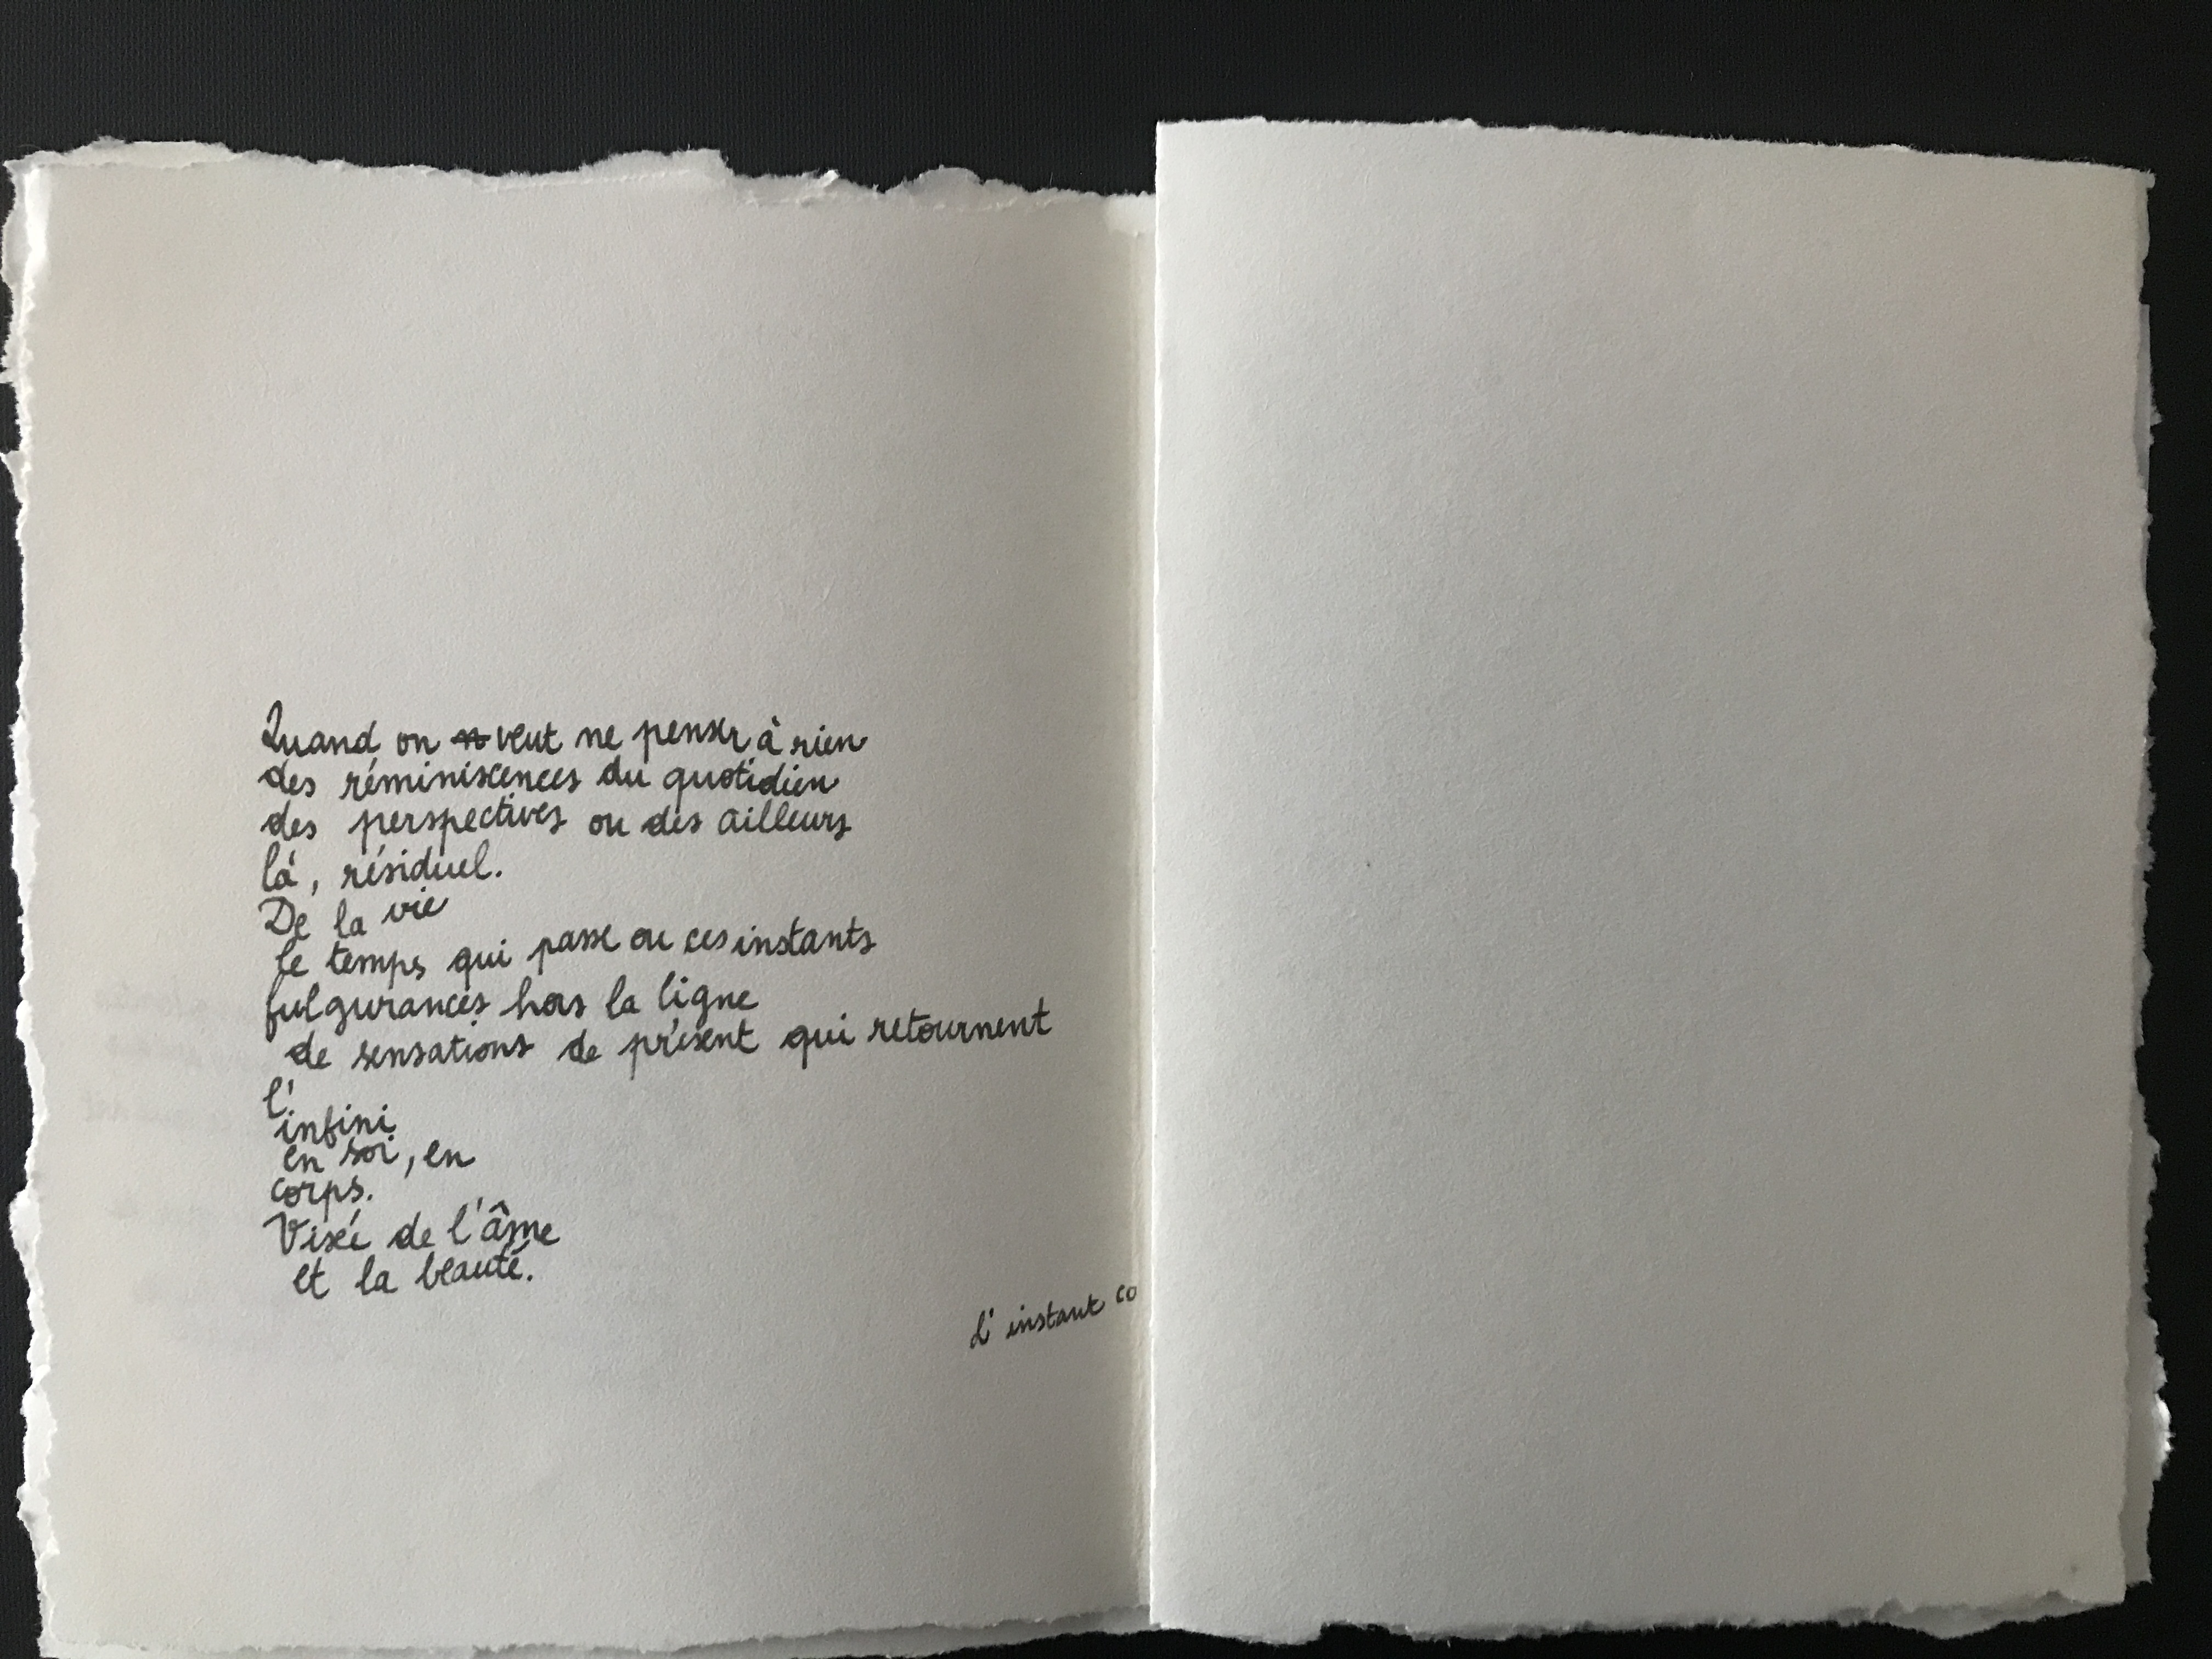 Quand on n veut ne penser à rien
des réminiscences du quotidien
des perspectives ou des ailleurs
là, résiduel.
De la vie
le temps qui passe ou ces instants
fulgurances hors la ligne
de sensations de présent qui retournent
l'
infini
en soi, en
corps.
Visée de l'âme
et la beauté.
L'instant co